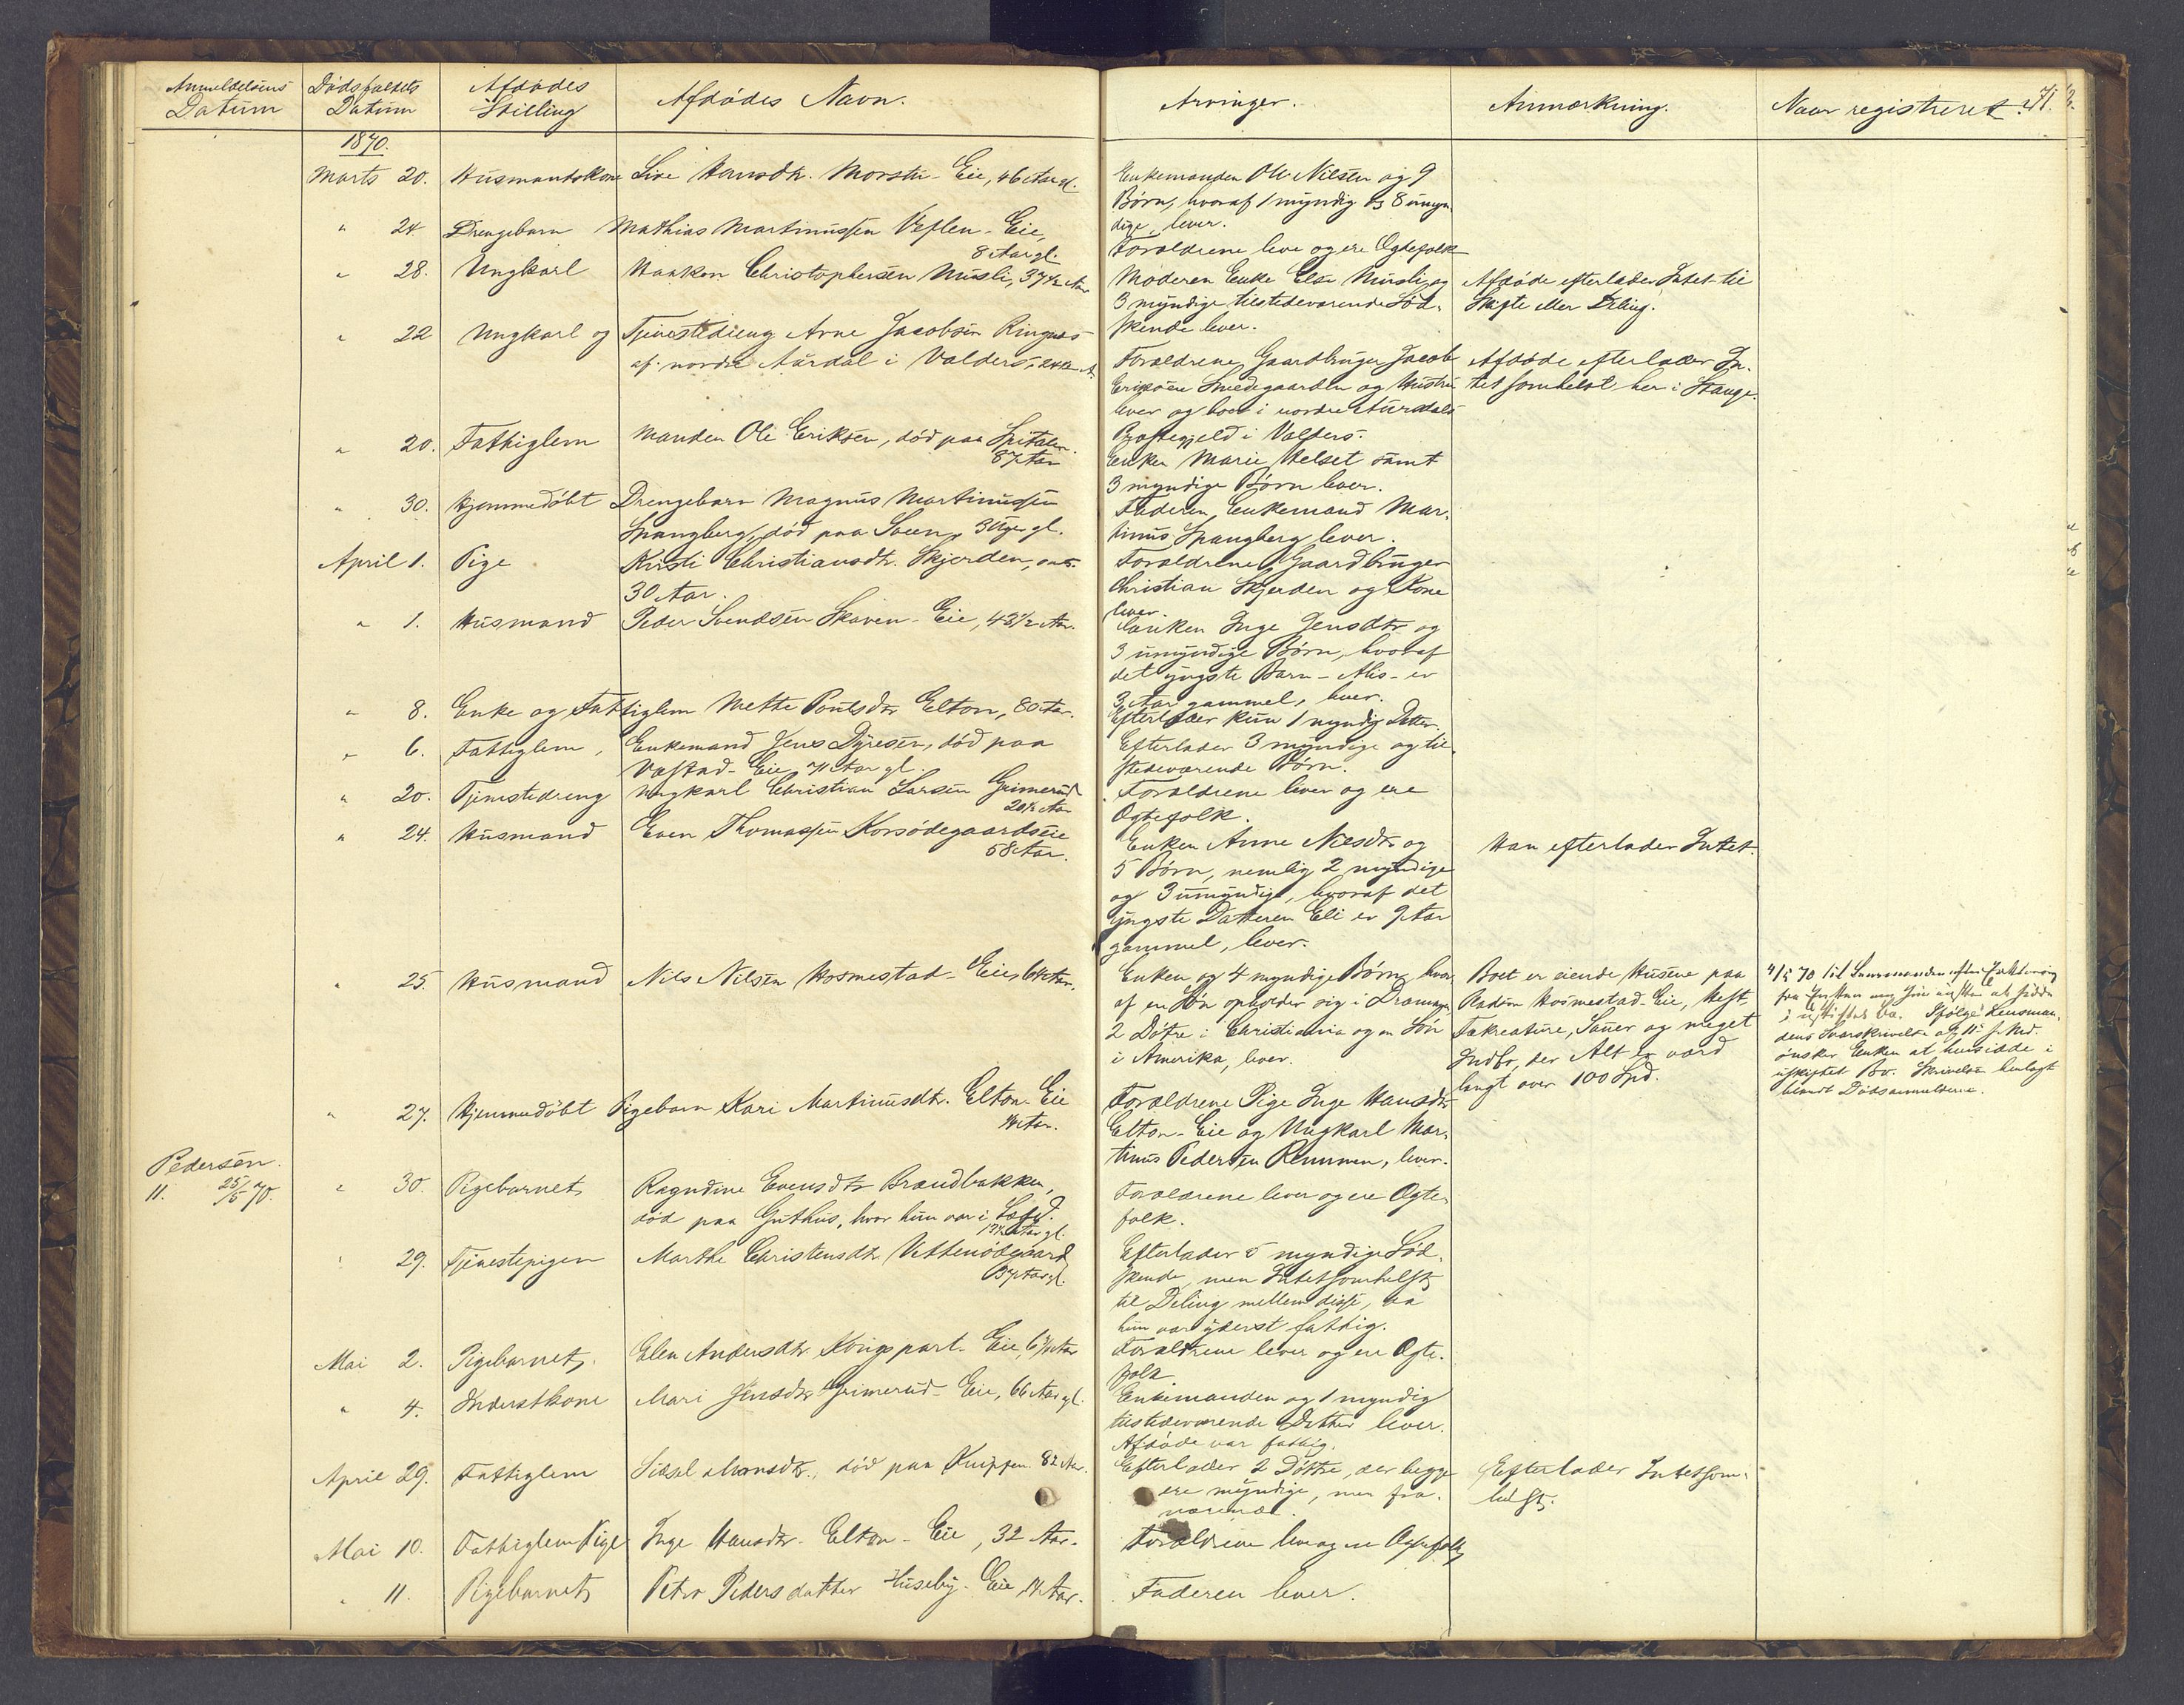 Anmeldelsens Datum
Dødsfaldets Datum
Afdødes Stilling
Afdødes Navn.
Arvinger.
Anmærkning.
Naar registreret.
71.
1870.
Marts 20. Husmandskone Live Hansdtr. Morstu-Eie, 46 Aar gl.
Enkemanden Ole Nilsen og 9
Børn, hvoraf 1 myndig og 8 umyn-
dige, lever.
" 24. Drengebarn Mathias Martinussen Veflen-Eie,
8 Aar gl.
Forældrene leve og ere Ægtefolk
" 28. Ungkarl Haakon Christophersen Musli, 37 1/2 Aar
Moderen Enke Elen Musli og
3 myndige tilstedeværende Sød-
skende lever.
Afdøde efterlader Intet til
Skifte eller Deling.
" 22 Ungkarl og Tjenestedreng Arne Jacobsen Ringnæs
af nordre Aurdal i Valders,
Forældrene, Gaardbruger Jacob
Eriksen Smedsgaarden og Hustru
lever og boer i nordre Aurdals
Præstegjeld i Valders.
Afdøde efterlader In-
tet somhelst her i Stange.
" 20. Fattiglem Manden Ole Eriksen, død paa Spitalen.
87 Aar
Enken Marie Helset samt
3 myndige Børn lever.
" 30. Hjemmedøbt Drengebarn Magnus Martinussen
Spangberg, død paa Saen, 3 Uger gl.
Faderen, Enkemand Mar-
tinus Spangberg lever.
April 1. Pige Kristi Christiansdtr. Skjerden,
30 Aar.
Forældrene Gaardbruger
Christian Skjerden og Kone
lever.
" 1. Husmand Peder Svendsen Skaven-Eie, 43 1/2 Aar.
Enken Inge Jensdtr. og
3 umyndige Børn, hvoraf
det yngste Barn - Alis - er
3 Aar gammel, lever.
" 8. Enke og Fattiglem Mette Poulsdtr Elton, 80 Aar.
Efterlader kun 1 myndig Datter.
" 6. Fattiglem, Enkemand Jens Dyresen, død paa
Vastad-Eie, 71 Aar gl.
Efterlader 3 myndige og til-
stedeværende Børn.
" 20. Tjenestedreng Ungkarl Christian Larsen Grimerud
20 1/2 Aar
Forældrene lever og ere
Ægtefolk.
" 24. Husmand Even Thomassen Korsødegaardseie
58 Aar.
Enken Anne Nilsdtr og
5 Børn, nemlig 2 myndige
og 3 umyndige, hvoraf det
yngste Datteren Eli er 9 Aar
gammel, lever.
Han efterlader Intet.
" 25. Husmand Nils Nilsen Hosmestad-Eie, 64 Aar.
Enken og 4 myndige Børn, hvor-
af en Søn opholder sig i Drammen,
2 Døtre i Christiania og en Søn
i Amerika, lever.
Boet er eiende Husene paa
Pladsen Hosmestad-Eie, Hest,
Fækreature, Sauer og meget
Indbo, der Alt er værd
langt over 100 Spd.
4/5 70 til Lensmanden
i uskiftet Bo. Ifølge Lensman-
dens Svarskrivelse af 11 s. Md.
ønsker Enken at hensidde i
uskiftet Bo. Skrivelsen henlagt
blandt Dødsanmeldelserne.
" 27. Hjemmedøbt Pigebarn Kari Martinusdtr. Elton-Eie
Forældrene Pige Inge Hansdtr
Elton-Eie og Ungkarl Mar-
tinus Pedersen Remmen, lever.
Pedersen.
11. 25/5 70.
" 30. Pigebarnet Ragndine Evensdtr Brændbakken,
død paa Guthus, hvor hun var i
Forældrene lever og ere Ægte-
folk.
" 29. Tjenestepigen Marthe Christensdtr. Vettenødegaard
37 Aar gl.
Efterlader 5 myndige Sød-
skende, men Intetsomhelst
til Deling mellem disse, da
hun var yderst fattig.
Mai 2. Pigebarnet Elen Andersdtr. Kongspart-Eie,
Forældrene lever og ere Ægte-
folk
" 4. Inderstkone Mari Jensdtr Grimerud-Eie, 66 Aar gl.
Enkemanden og 1 myndig
tilstedeværende Datter lever.
Afdøde var fattig.
April 29. Fattiglem Sidsel Monsdtr., død paa Knippen. 82 Aar.
Efterlader 2 Døttre, der begge
ere myndige, men fra-
værende.
Efterlader Intetsom-
helst.
Mai 10. Fattiglem Pige Inge Hansdtr. Elton-Eie, 32 Aar.
Forældrene lever og ere Ægtefolk
" 11. Pigebarnet Petra Pedersdatter Huseby-Eie,
Faderen lever.